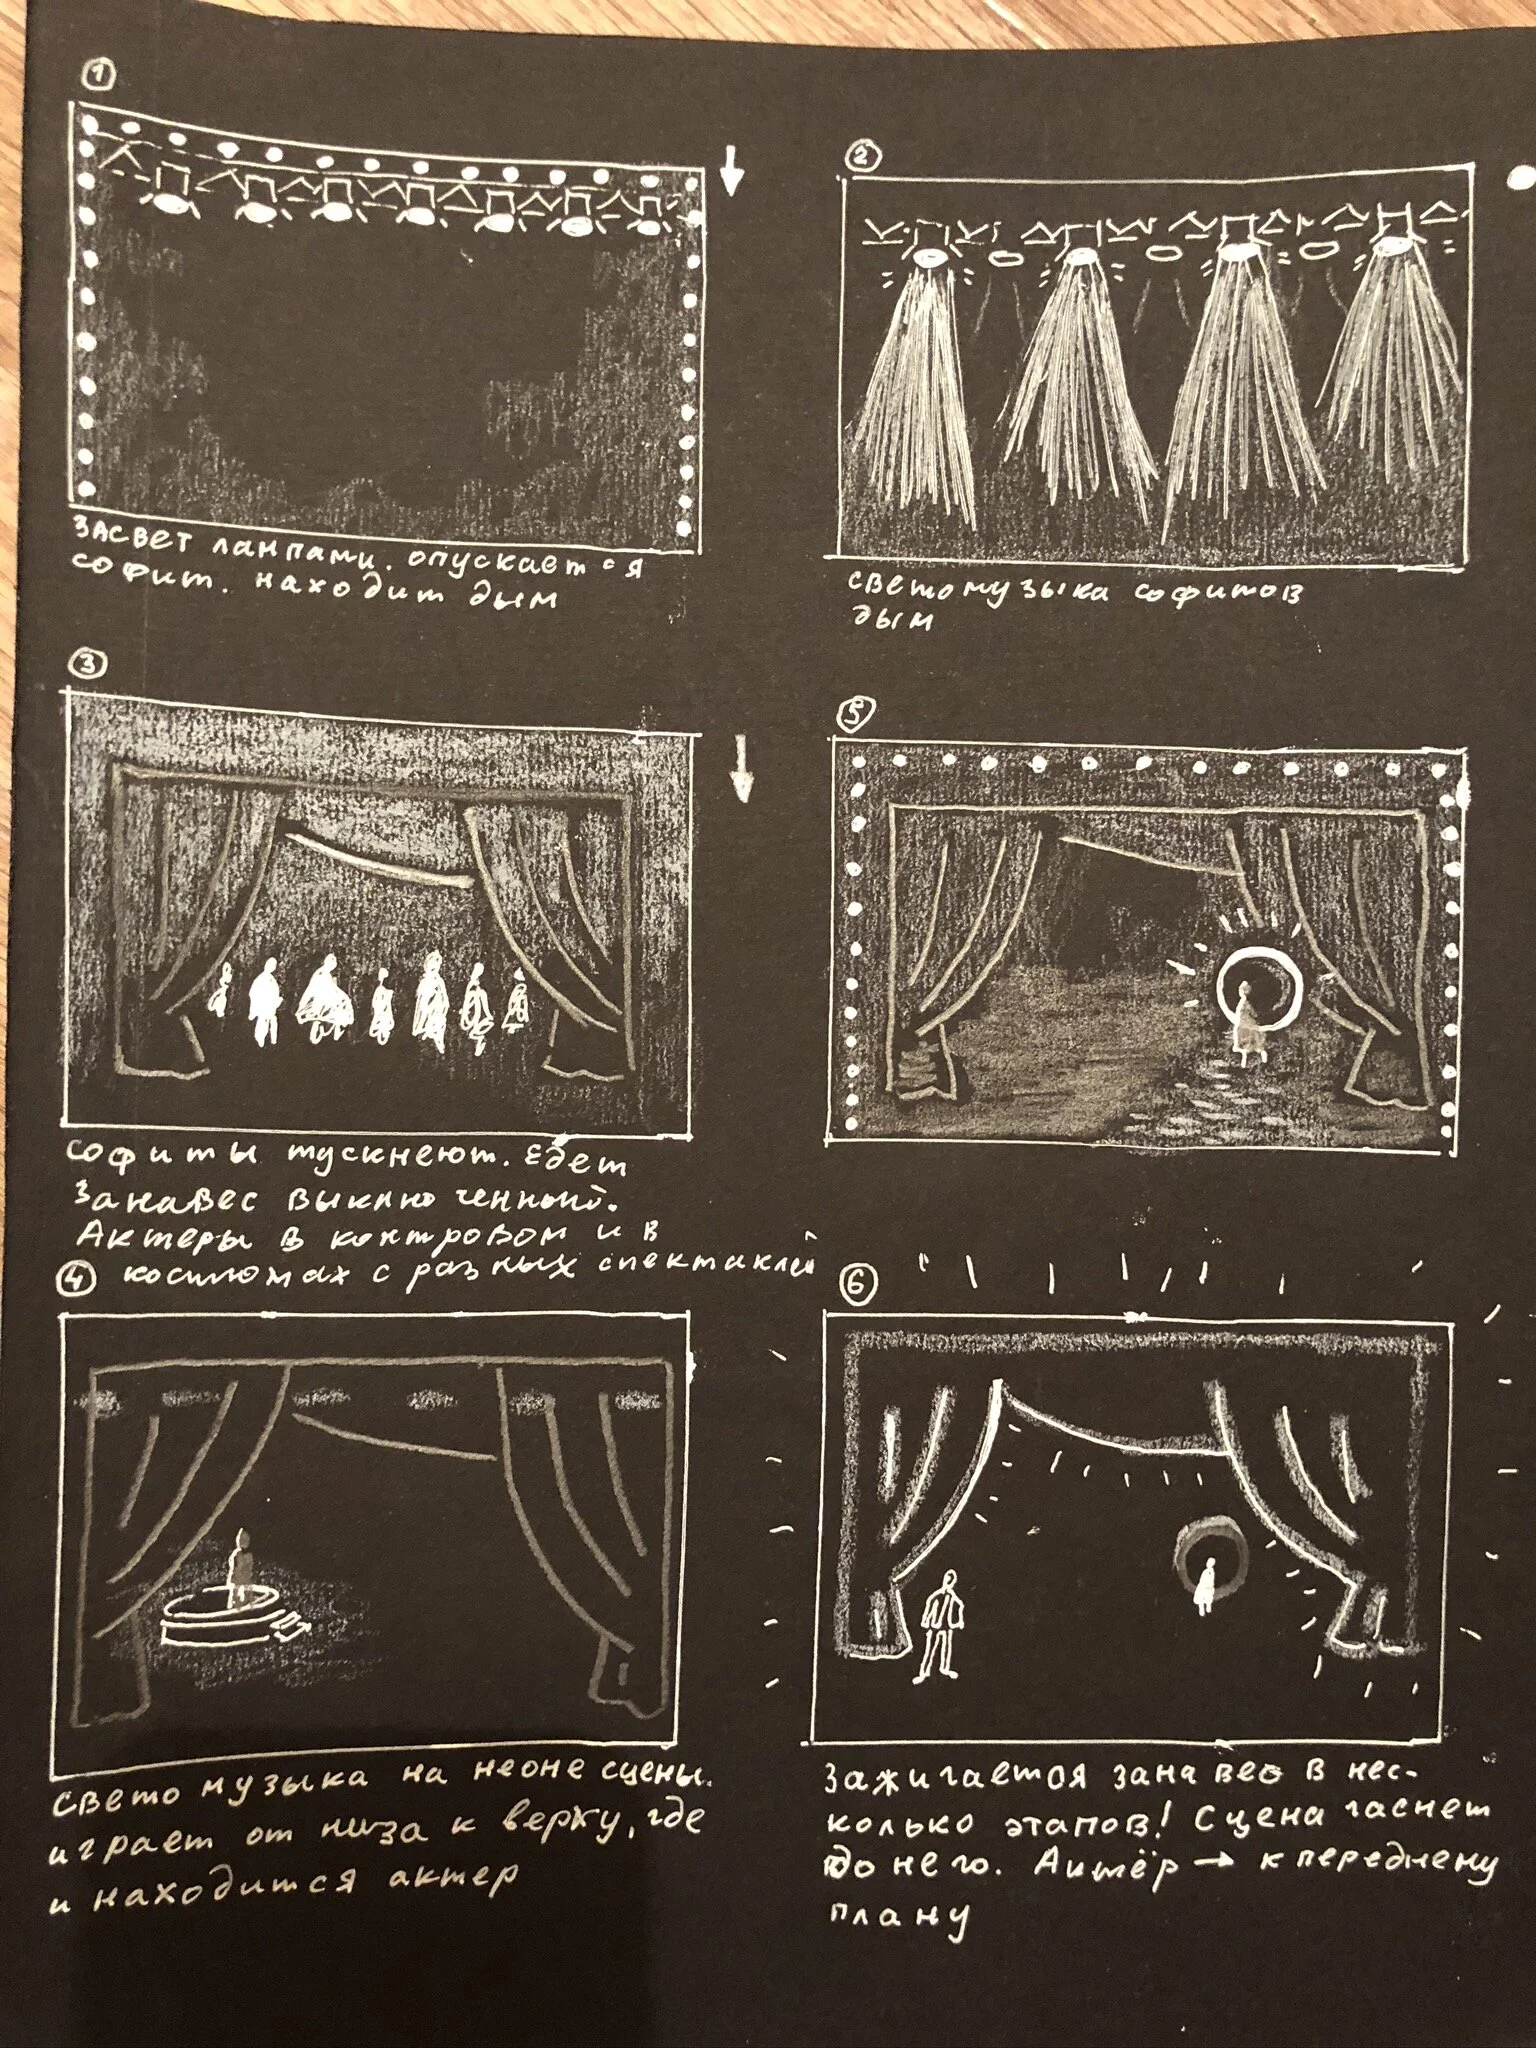 1
ЗАСВЕТ лампами. опускается
софит. находит дым
2
светомузыка софитов
дым
3
софиты тускнеют. Едет
Занавес выключенный.
Актеры в контровом и в
костюмах с разных спектаклей
5
4
свето музыка на неоне сцены.
играет от низа к верху, где
и находится актер
6
Зажигается занавес в нес-
колько этапов! Сцена гаснет
до него. Актёр → к переднему
плану